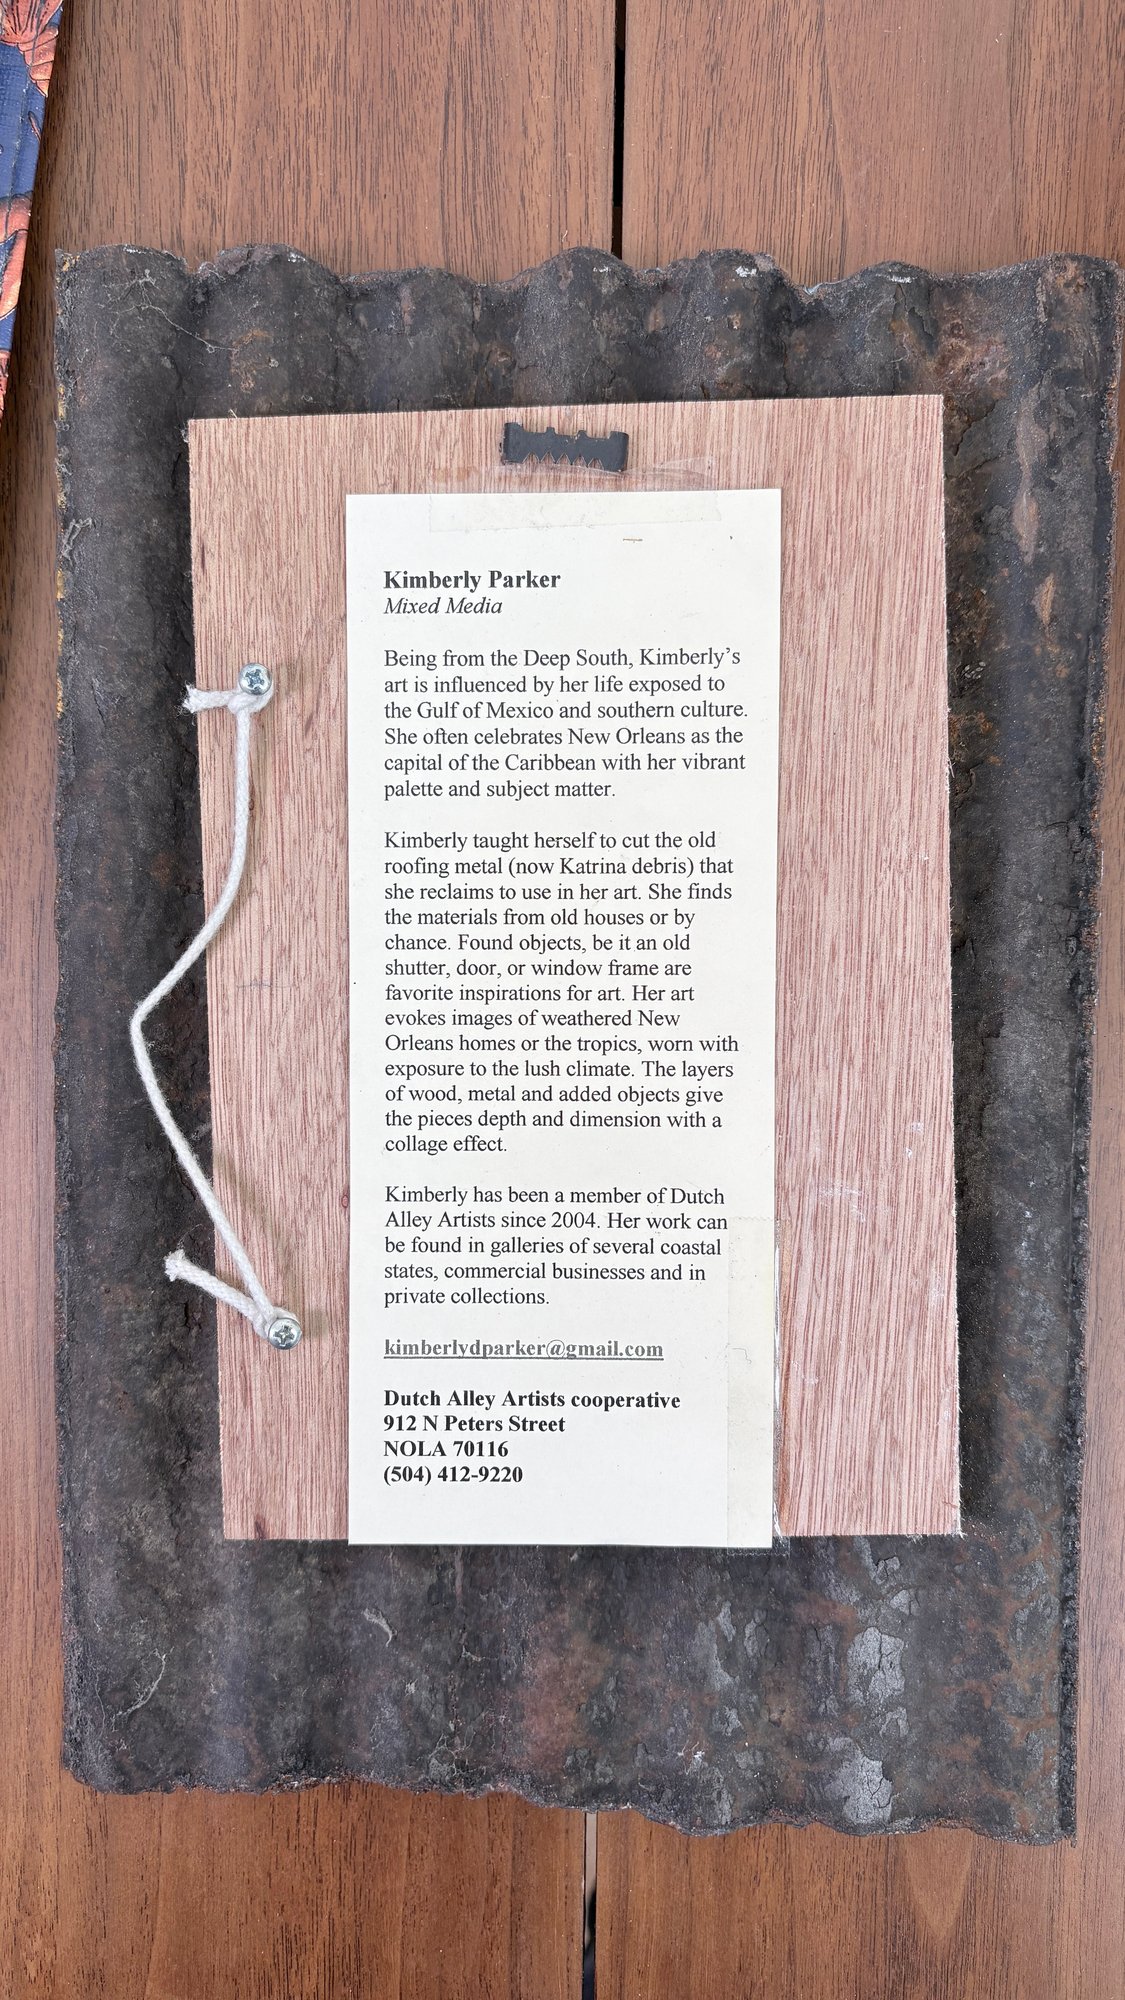 Kimberly Parker
Mixed Media
Being from the Deep South, Kimberly's
art is influenced by her life exposed to
the Gulf of Mexico and southern culture.
She often celebrates New Orleans as the
capital of the Caribbean with her vibrant
palette and subject matter.
Kimberly taught herself to cut the old
roofing metal (now Katrina debris) that
she reclaims to use in her art. She finds
the materials from old houses or by
chance. Found objects, be it an old
shutter, door, or window frame are
favorite inspirations for art. Her art
evokes images of weathered New
Orleans homes or the tropics, worn with
exposure to the lush climate. The layers
of wood, metal and added objects give
the pieces depth and dimension with a
collage effect.
Kimberly has been a member of Dutch
Alley Artists since 2004. Her work can
be found in galleries of several coastal
states, commercial businesses and in
private collections.
kimberlydparker@gmail.com
Dutch Alley Artists cooperative
912 N Peters Street
NOLA 70116
(504) 412-9220